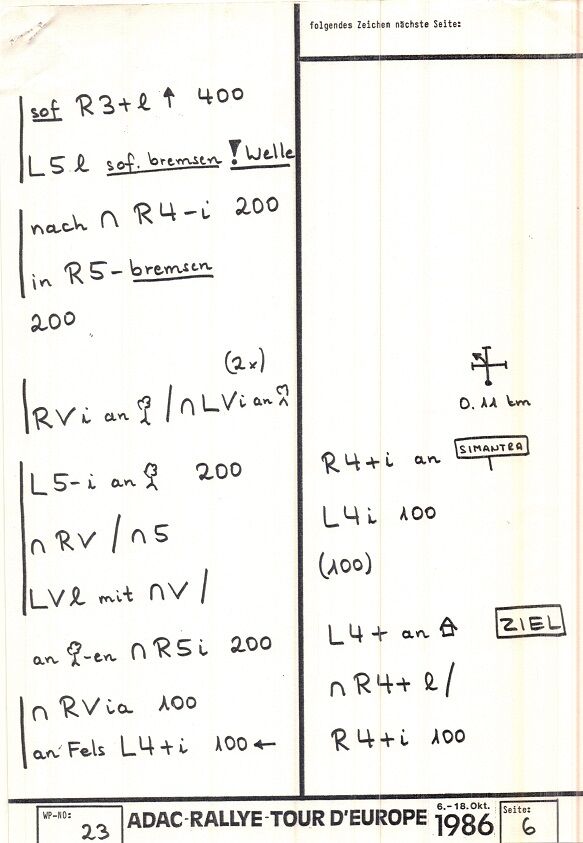 folgendes Zeichen nächste Seite:
sof R3+l ↑ 400
L5 l sof. bremsen ! Welle
nach ∩ R4-i 200
in R5-bremsen
200
(2x)
RVi an / ∩ LVi an
L5-i an 200
∩ RV / ∩5
LVl mit ∩V /
an -en ∩ R5i 200
∩ RVia 100
an Fels L4+i 100 ←
0.11 km
R4+i an SIMANTRA
L4i 100
(100)
L4+ an ZIEL
∩ R4+ l /
R4+i 100
WP-NO: 23
ADAC-RALLYE-TOUR D'EUROPE
6.-18. Okt. 1986
Seite: 6